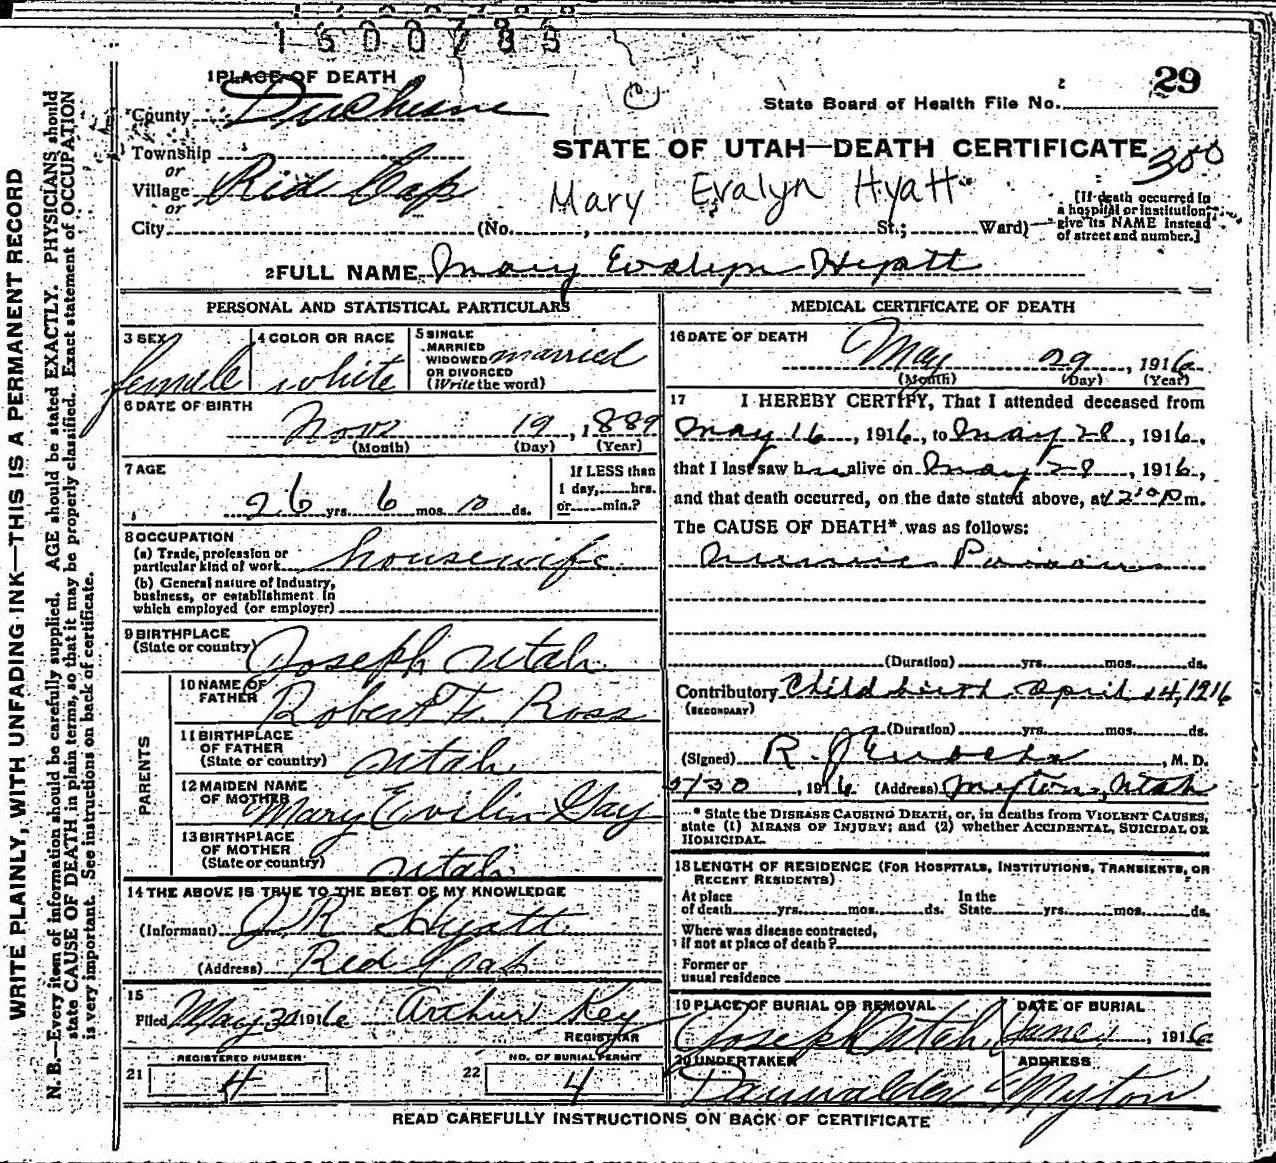 1600785
1 PLACE OF DEATH
29
State Board of Health File No.
County Duchesne
STATE OF UTAH—DEATH CERTIFICATE
300
Township
or
Village Red Cap
or
Mary Evalyn Hyatt
[If death occurred in
a hospital or institution,
give its NAME instead
of street and number.]
City (No. , St.; Ward)
2 FULL NAME Mary Evalyn Hyatt
PERSONAL AND STATISTICAL PARTICULARS
3 SEX female
4 COLOR OR RACE white
5 SINGLE
MARRIED
WIDOWED married
OR DIVORCED
(Write the word)
6 DATE OF BIRTH
Nov 19, 1889
(Month) (Day) (Year)
7 AGE
26 yrs. 6 mos. 10 ds.
If LESS than
1 day, hrs.
or min.?
8 OCCUPATION
(a) Trade, profession or
particular kind of work housewife
(b) General nature of Industry,
business, or establishment in
which employed (or employer)
9 BIRTHPLACE
(State or country) Joseph Utah
PARENTS
10 NAME OF
FATHER Robert Ross
11 BIRTHPLACE
OF FATHER
(State or country) Utah
12 MAIDEN NAME
OF MOTHER Mary Evelin Gay
13 BIRTHPLACE
OF MOTHER
(State or country) Utah
14 THE ABOVE IS TRUE TO THE BEST OF MY KNOWLEDGE
(Informant) J R Hyatt
(Address) Red Cap
15
Filed May 30 1916 Arthur Key
REGISTRAR
REGISTERED NUMBER
21 4
NO. OF BURIAL PERMIT
22 4
MEDICAL CERTIFICATE OF DEATH
16 DATE OF DEATH
May 29, 1916
(Month) (Day) (Year)
17 I HEREBY CERTIFY, That I attended deceased from
May 16, 1916, to May 28, 1916,
that I last saw her alive on May 28, 1916,
and that death occurred, on the date stated above, at 12 m.
The CAUSE OF DEATH* was as follows:
(Duration) yrs. mos. ds.
Contributory Child birth April 14, 1916
(SECONDARY)
(Duration) yrs. mos. ds.
(Signed) R. J. Enochs, M. D.
5/30, 1916 (Address) Myton, Utah
* State the DISEASE CAUSING DEATH, or, in deaths from VIOLENT CAUSES,
state (1) MEANS OF INJURY; and (2) whether ACCIDENTAL, SUICIDAL OR
HOMICIDAL.
18 LENGTH OF RESIDENCE (FOR HOSPITALS, INSTITUTIONS, TRANSIENTS, OR
RECENT RESIDENTS)
At place
of death yrs. mos. ds.
In the
State yrs. mos. ds.
Where was disease contracted,
if not at place of death?
Former or
usual residence
19 PLACE OF BURIAL OR REMOVAL
Joseph Utah
DATE OF BURIAL
June 1, 1916
20 UNDERTAKER
ADDRESS
Myton
READ CAREFULLY INSTRUCTIONS ON BACK OF CERTIFICATE
WRITE PLAINLY, WITH UNFADING INK—THIS IS A PERMANENT RECORD
N. B.—Every item of information should be carefully supplied. AGE should be stated EXACTLY. PHYSICIANS should
state CAUSE OF DEATH in plain terms, so that it may be properly classified. Exact statement of OCCUPATION
is very important. See instructions on back of certificate.